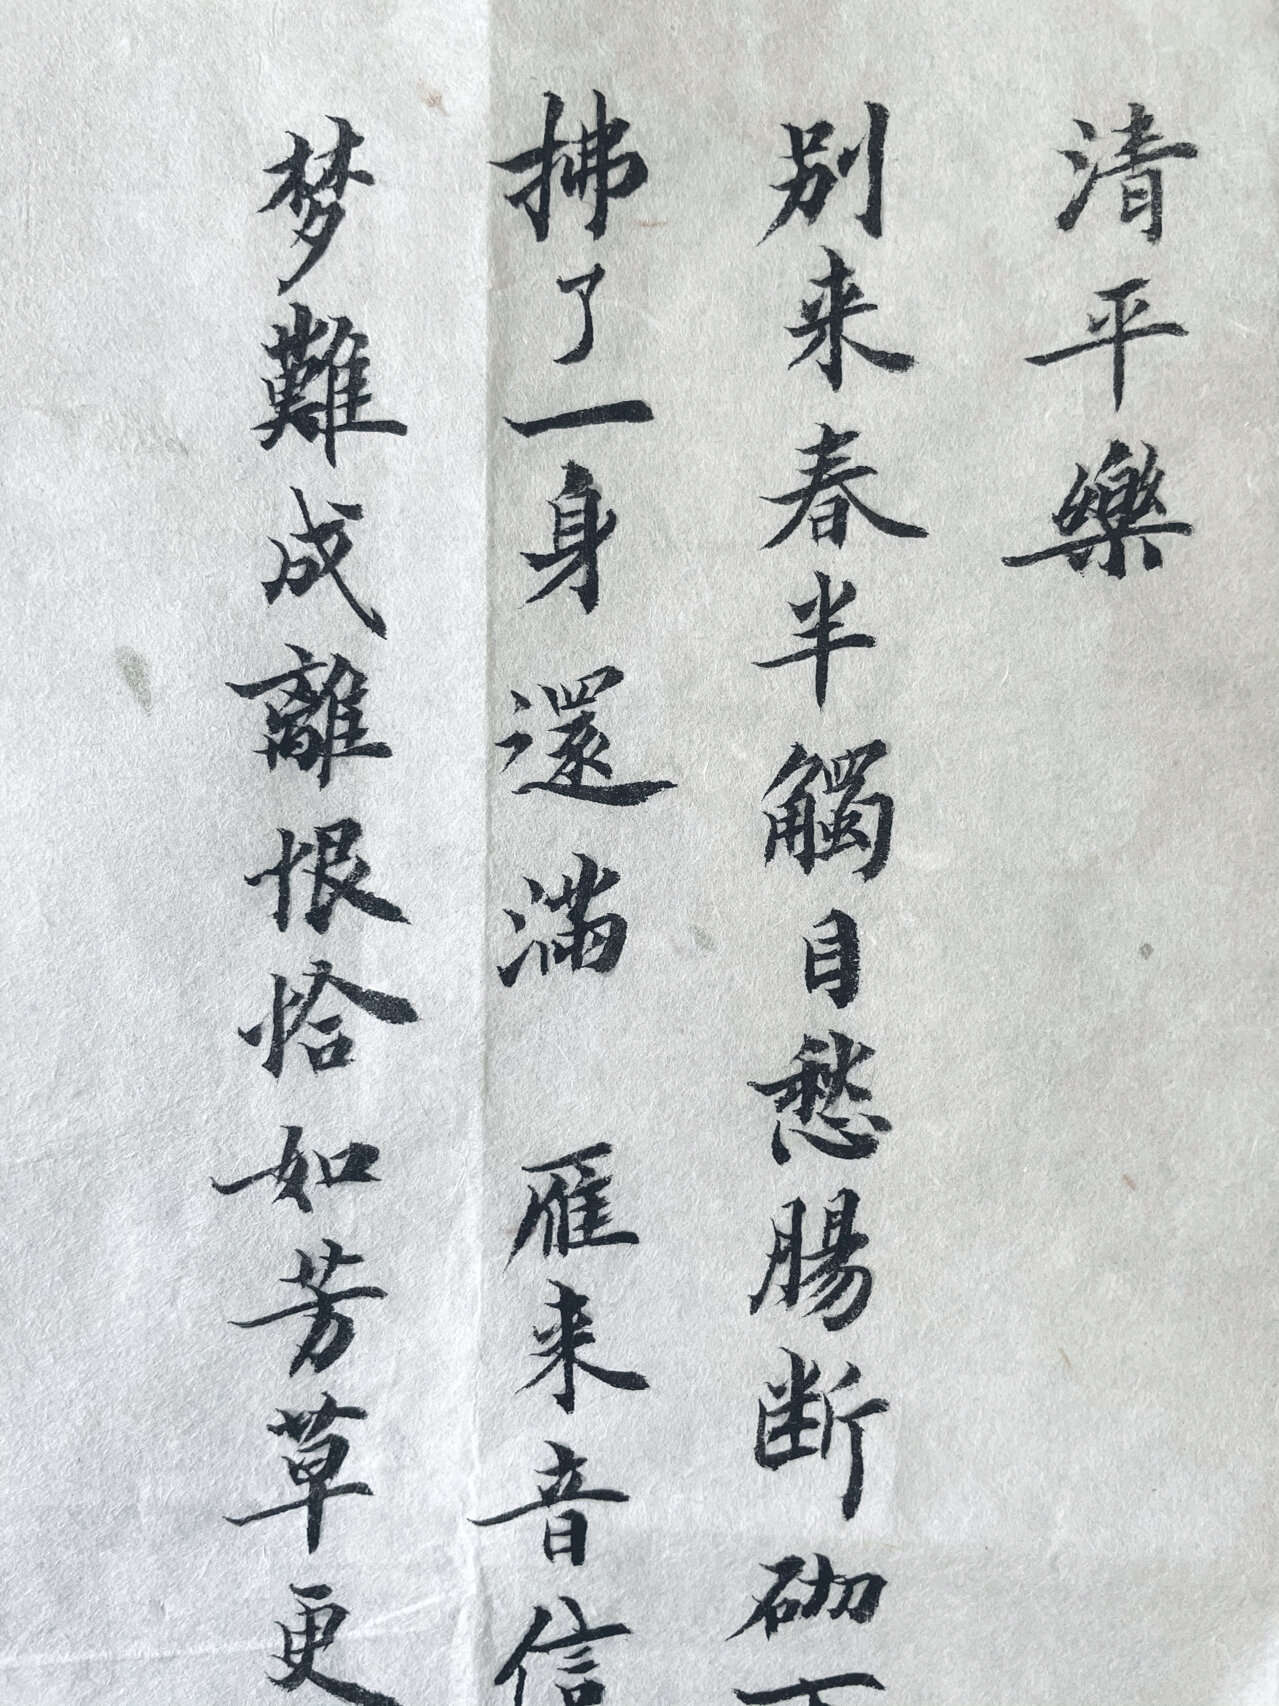 清平樂
别来春半觸目愁腸断砌下
拂了一身還滿 雁来音信
梦難成離恨恰如芳草更